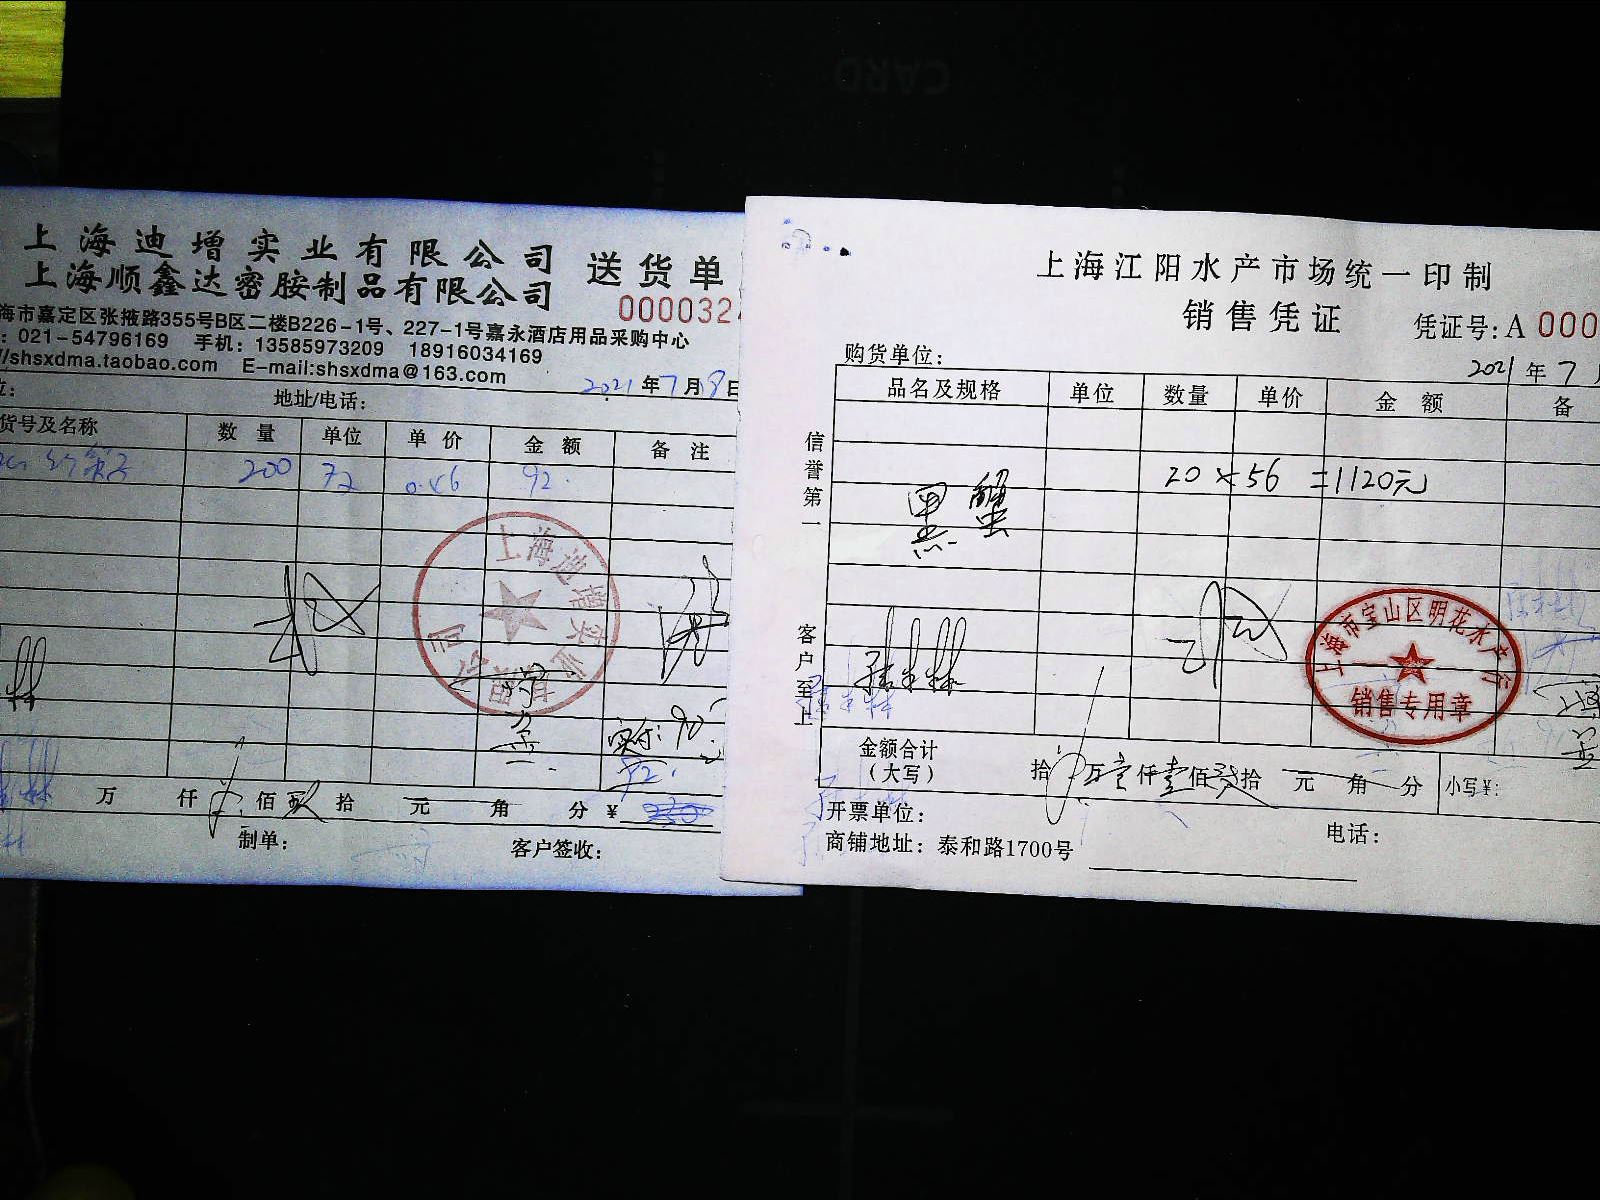 上海迪增实业有限公司
上海顺鑫达密胺制品有限公司
送货单
000032
海市嘉定区张掖路355号B区二楼B226-1号、227-1号嘉永酒店用品采购中心
: 021-54796169 手机: 13585973209 18916034169
//shsxdma.taobao.com E-mail:shsxdma@163.com
2021年7月8日
位:
地址/电话:
货号及名称 数量 单位 单价 金额 备注
200 0.46 92.
上海迪增实业有限公司
实付: 90
92.
万 仟 佰 拾 元 角 分 ¥
制单:
客户签收:
上海江阳水产市场统一印制
销售凭证
凭证号: A 000
购货单位:
2021年7月
品名及规格 单位 数量 单价 金额 备
信誉第一
客户至上
黑蟹 20×56=1120元
上海市宝山区明花水产行
销售专用章
金额合计
(大写)
拾 万壹仟壹佰贰拾 元 角 分 小写¥:
开票单位:
电话:
商铺地址: 泰和路1700号